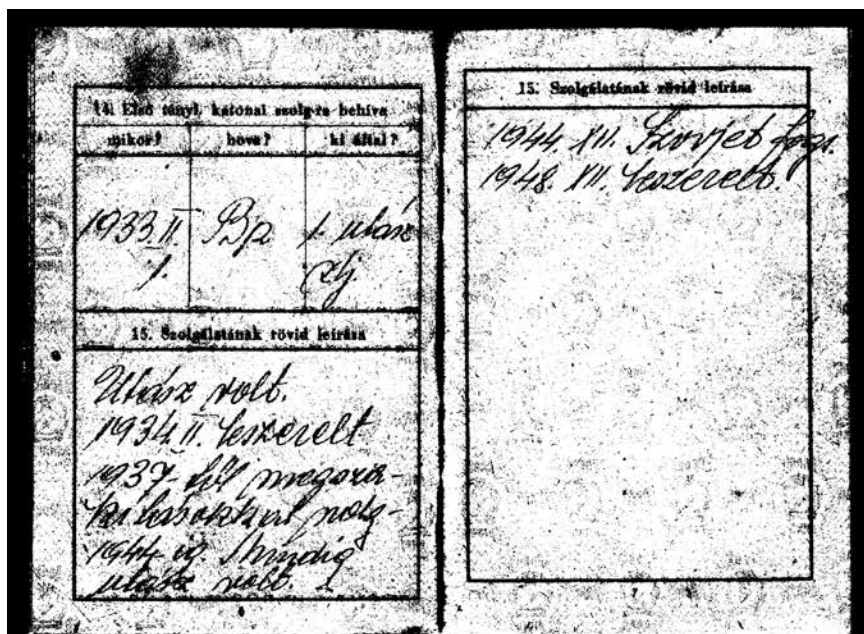 14. Első tényl. katonai szolg-ra behíva
mikor? hova? ki által?
1933. II. Bp 1. utász
1. zlj.
15. Szolgálatának rövid leírása
Utász volt.
1934. II. leszerelt
1937-től megsza-
kításokkal
1944-ig. Mindig
utász volt.
6
15. Szolgálatának rövid leírása
1944. XII. Szovjet fogs.
1948. XII. leszerelt.
7